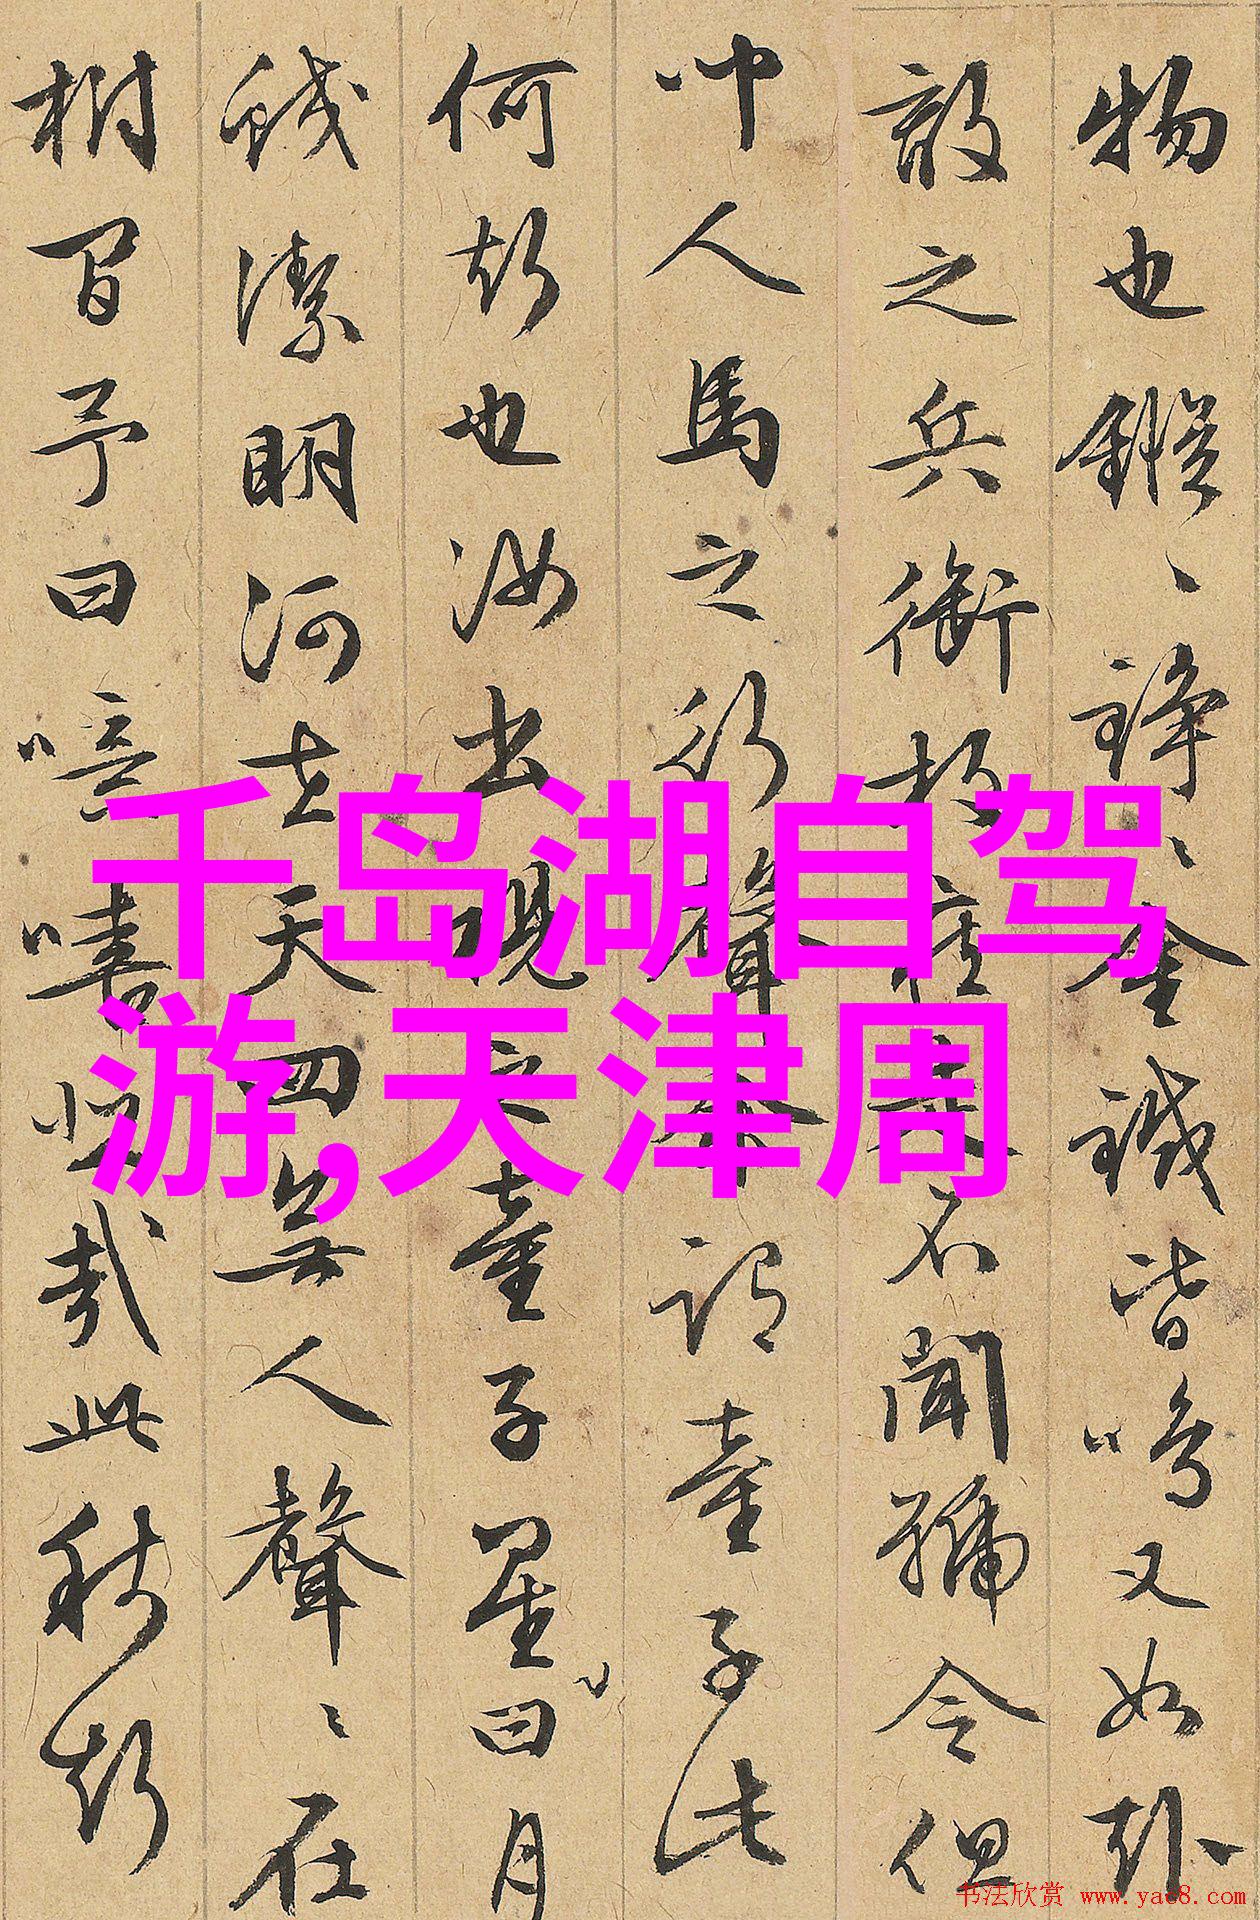 物也鏦〻錚〻金鐵皆鳴又如赴
敵之兵銜枚疾走不聞號令但
聞人馬之行聲余謂童子此
何聲也汝出視之童子星曰月
皎潔明河在天四無人聲〻在
樹間予曰噫嘻悲哉此秋聲
千岛湖自驾
游,天津周
书法欣赏 www.yac8.com